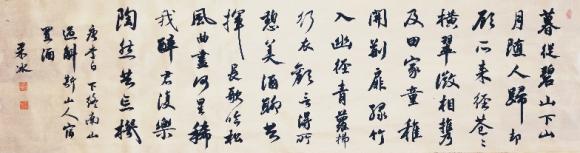 暮從碧山下山
月随人歸却
顧所来径蒼々
横翠微相携
及田家童稚
開荆扉绿竹
入幽径青蘿拂
行衣歡言得所
憩美酒聊共
揮長歌吟松
風曲盡河星稀
我醉君復樂
陶然共忘機
唐李白下终南山
過斛斯山人宿
置酒